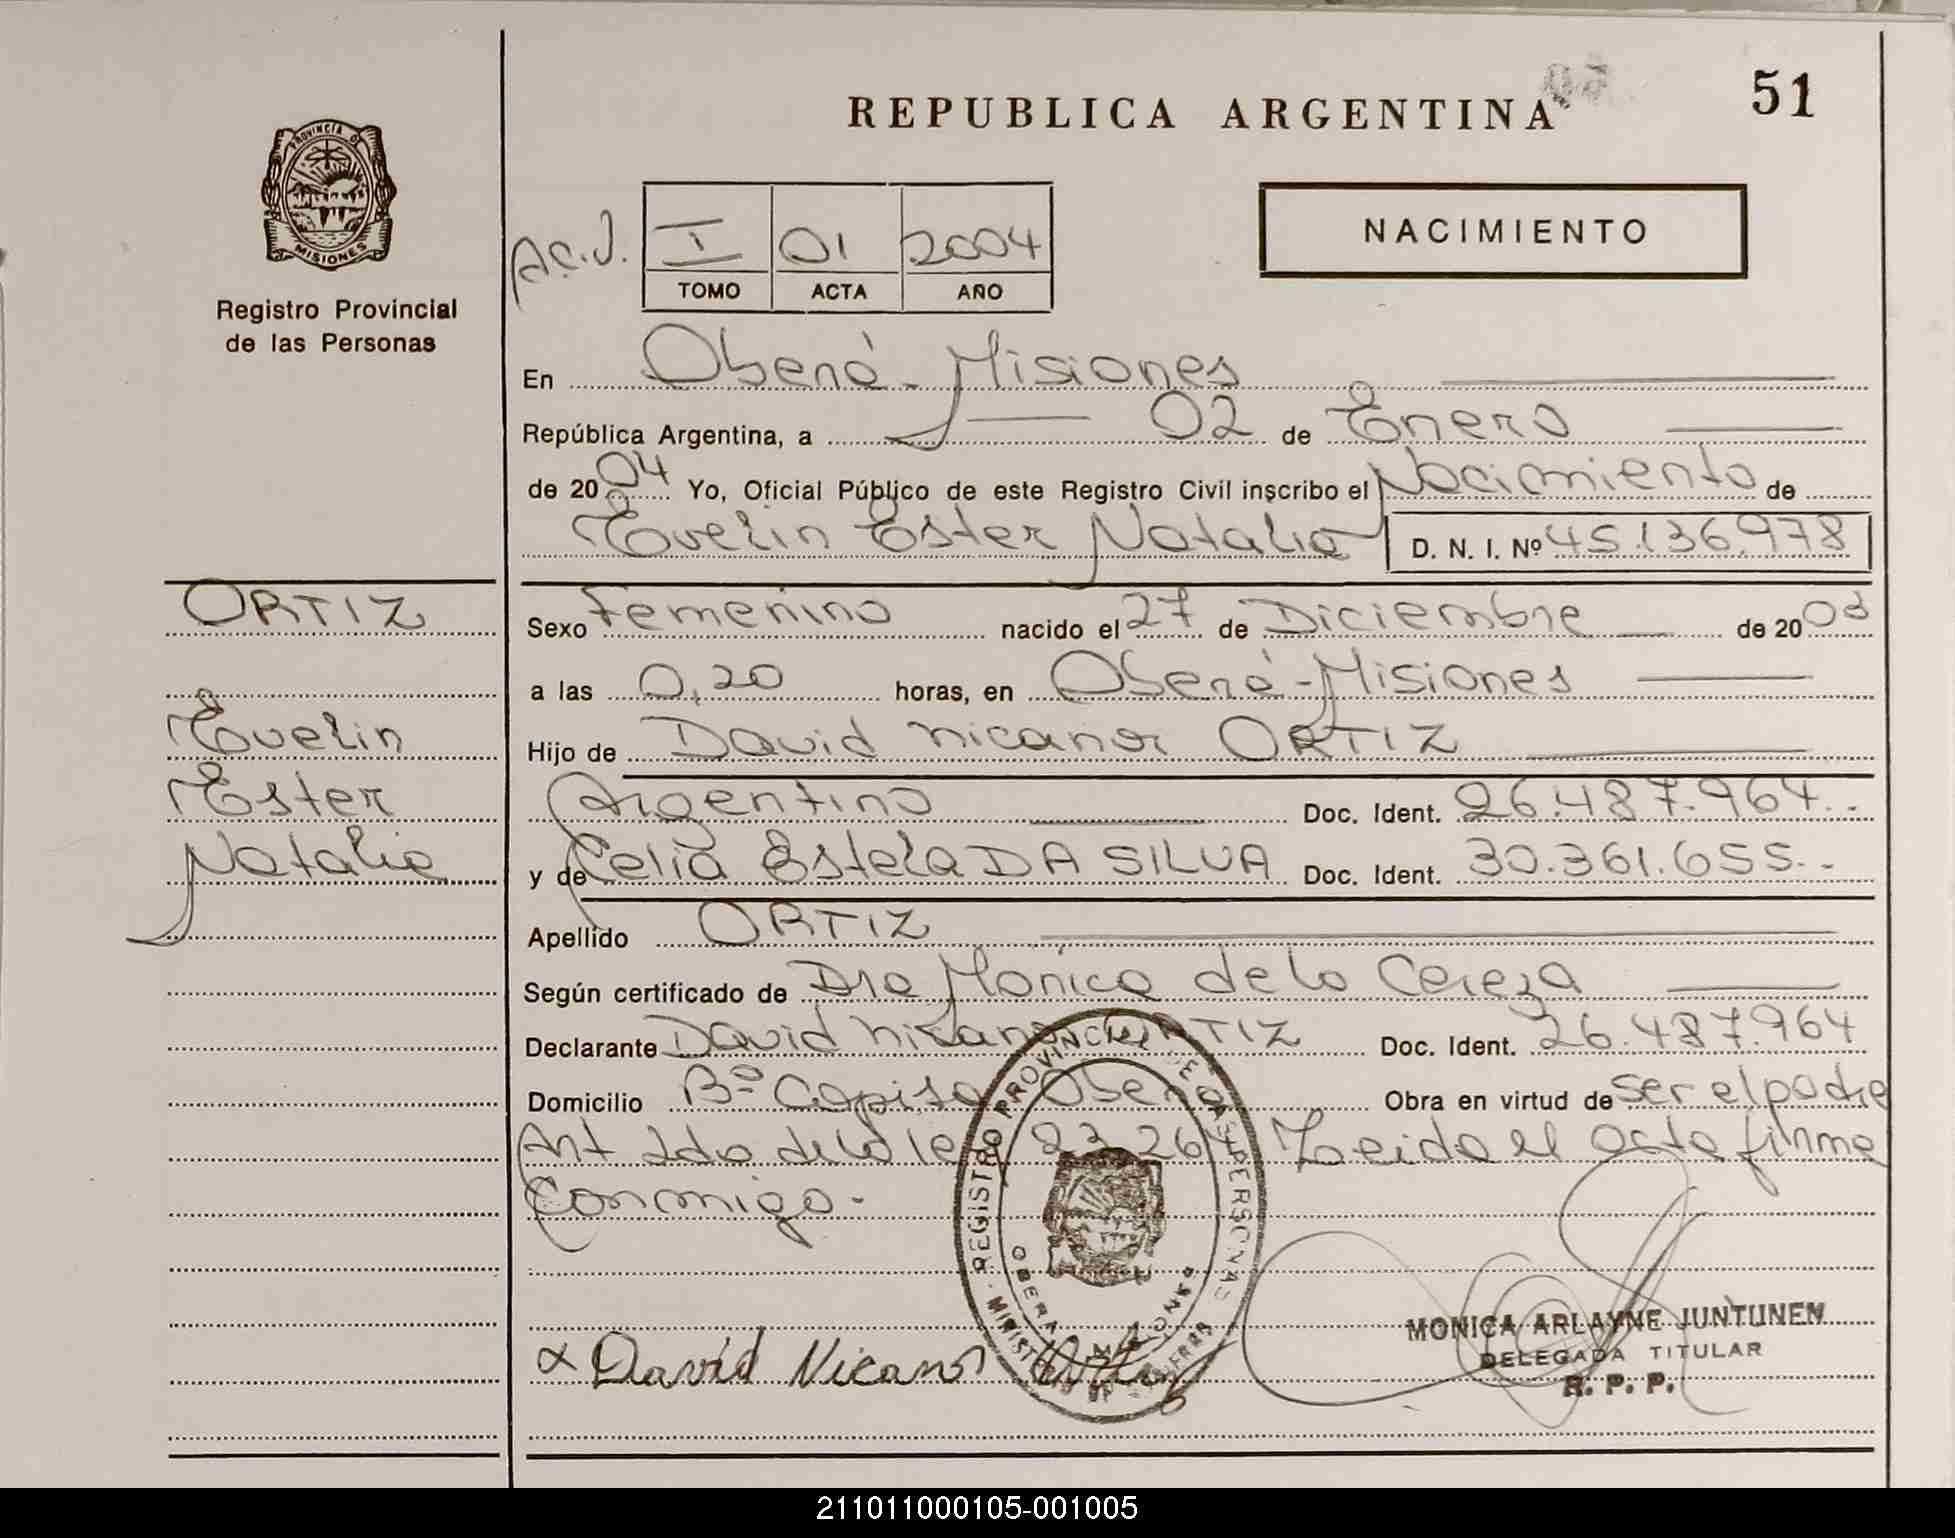 REPUBLICA ARGENTINA
51
PROVINCIA DE
MISIONES
Registro Provincial
de las Personas
Ac.J.
I 01 2004
TOMO ACTA AÑO
NACIMIENTO
En Oberá - Misiones
República Argentina, a 02 de Enero
de 2004 Yo, Oficial Público de este Registro Civil inscribo el Nacimiento de
Evelin Ester Natalia D. N. I. Nº 45.136.978
ORTIZ
Evelin
Ester
Natalia
Sexo Femenino nacido el 27 de Diciembre de 2003
a las 0,20 horas, en Oberá - Misiones
Hijo de David Nicanor ORTIZ
Argentino Doc. Ident. 26.487.964.-
y de Celia Estela DA SILVA Doc. Ident. 30.361.655.-
Apellido ORTIZ
Según certificado de Dra Mónica de la
Declarante David Nicanor ORTIZ Doc. Ident. 26.487.964
Domicilio Bº Oberá Obra en virtud de ser el padre
Art de la ley Leida el acta firma
conmigo.-
REGISTRO PROVINCIAL DE LAS PERSONAS
OBERA MISIONES
David Nicanor Ortiz
MONICA ARLAYNE JUNTUNEN
DELEGADA TITULAR
R. P. P.
211011000105-001005